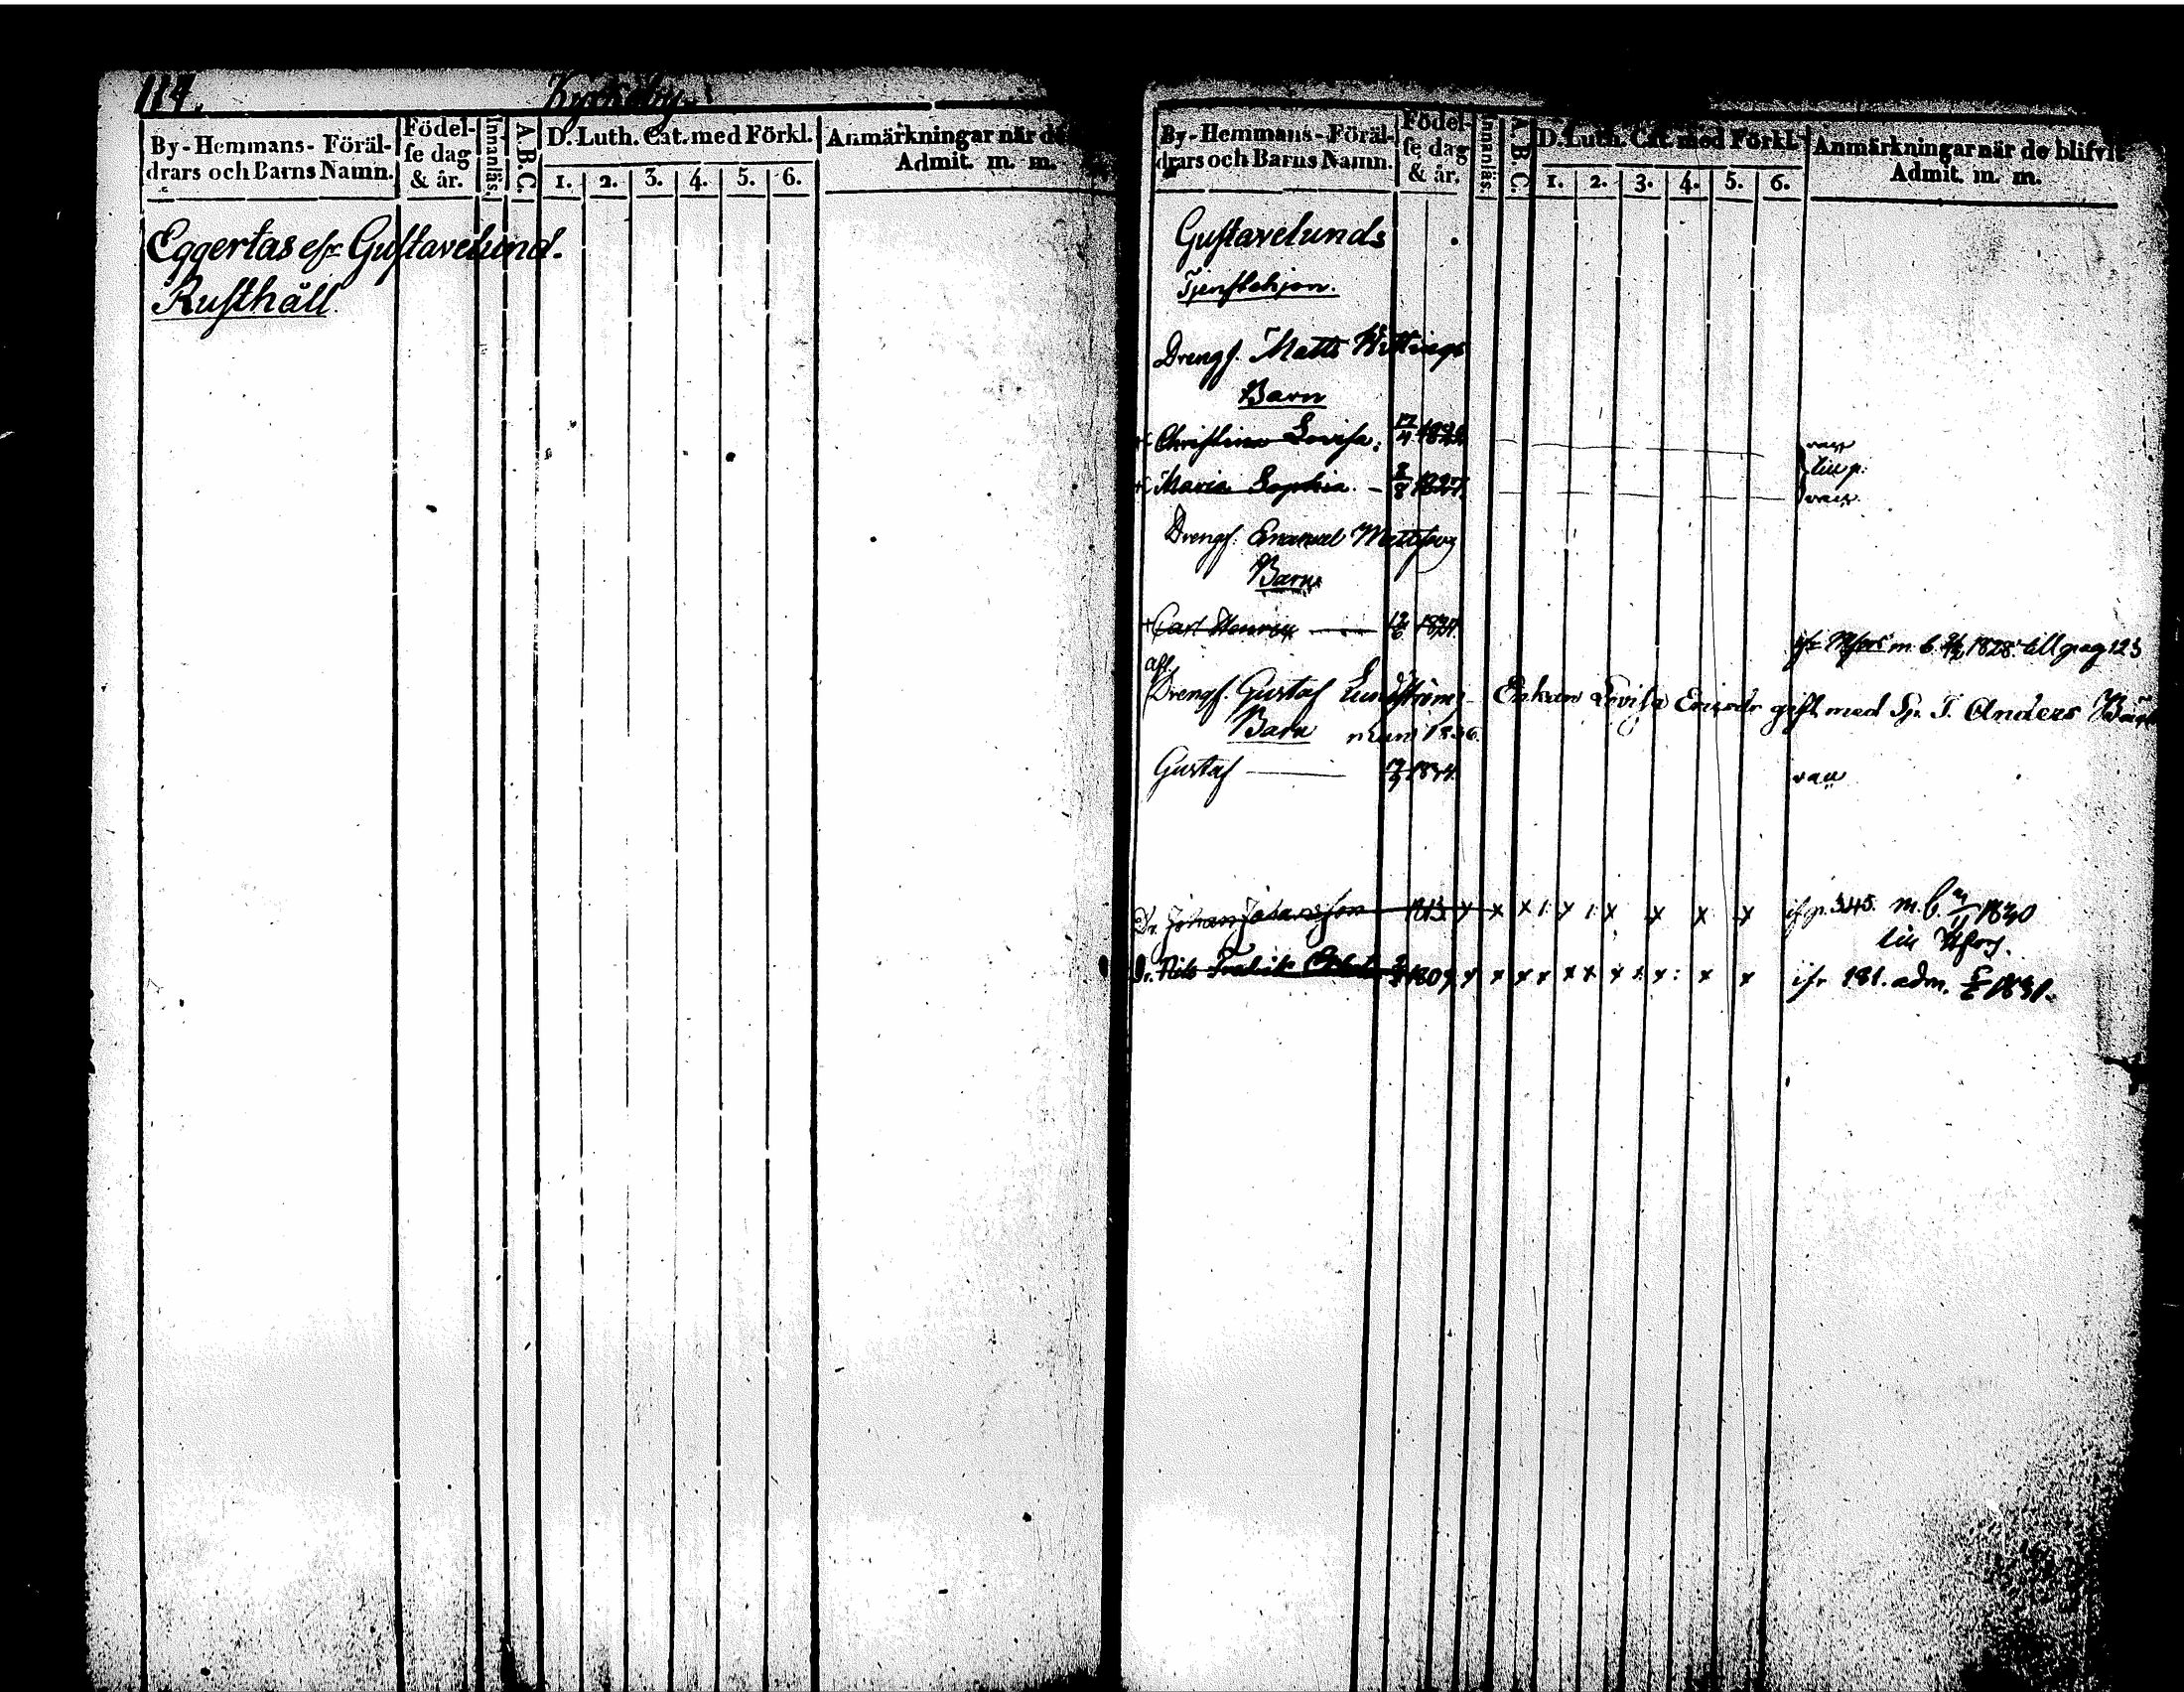 114.
Kyrkoby.
By-Hemmans-Föräl-
drars och Barns Namn.
Födel-
se dag
& år.
Innanläs.
A.B.C.
D. Luth. Cat. med Förkl.
1. 2. 3. 4. 5. 6.
Anmärkningar när de
Admit. m. m.
Eggertas eſr Guſtavelund.
Ruſthåll.
By-Hemmans-Föräl-
drars och Barns Namn.
Födel-
se dag
& år.
Innanläs.
A.B.C.
D. Luth. Cat. med Förkl.
1. 2. 3. 4. 5. 6.
Anmärkningar när de blifvit
Admit. m. m.
Guſtavelunds
Tjenſtehjon.
Drengſ. Matts
Barn
Chriſtina Loviſa.
till p.
Maria Sophia. 1827.
Drengſ. Emanuel Mattſson
Barn
Carl Henric
m. b. 1828. till pag 123
afl.
Drengſ. Guſtaf Lundſtröm Enkan Loviſa Ericsdr gift med Sp. T. Anders
Barn 1836.
Guſtaf 1824.
Dr. Johan Johansſon 1813. x x x 1. x 1. x x x x p. 345. m. b. 1830
till Hfors.
Dr. Nils Fredrik 1809 x x x x x x x x x: x x ifr. 181. adm. 1831.